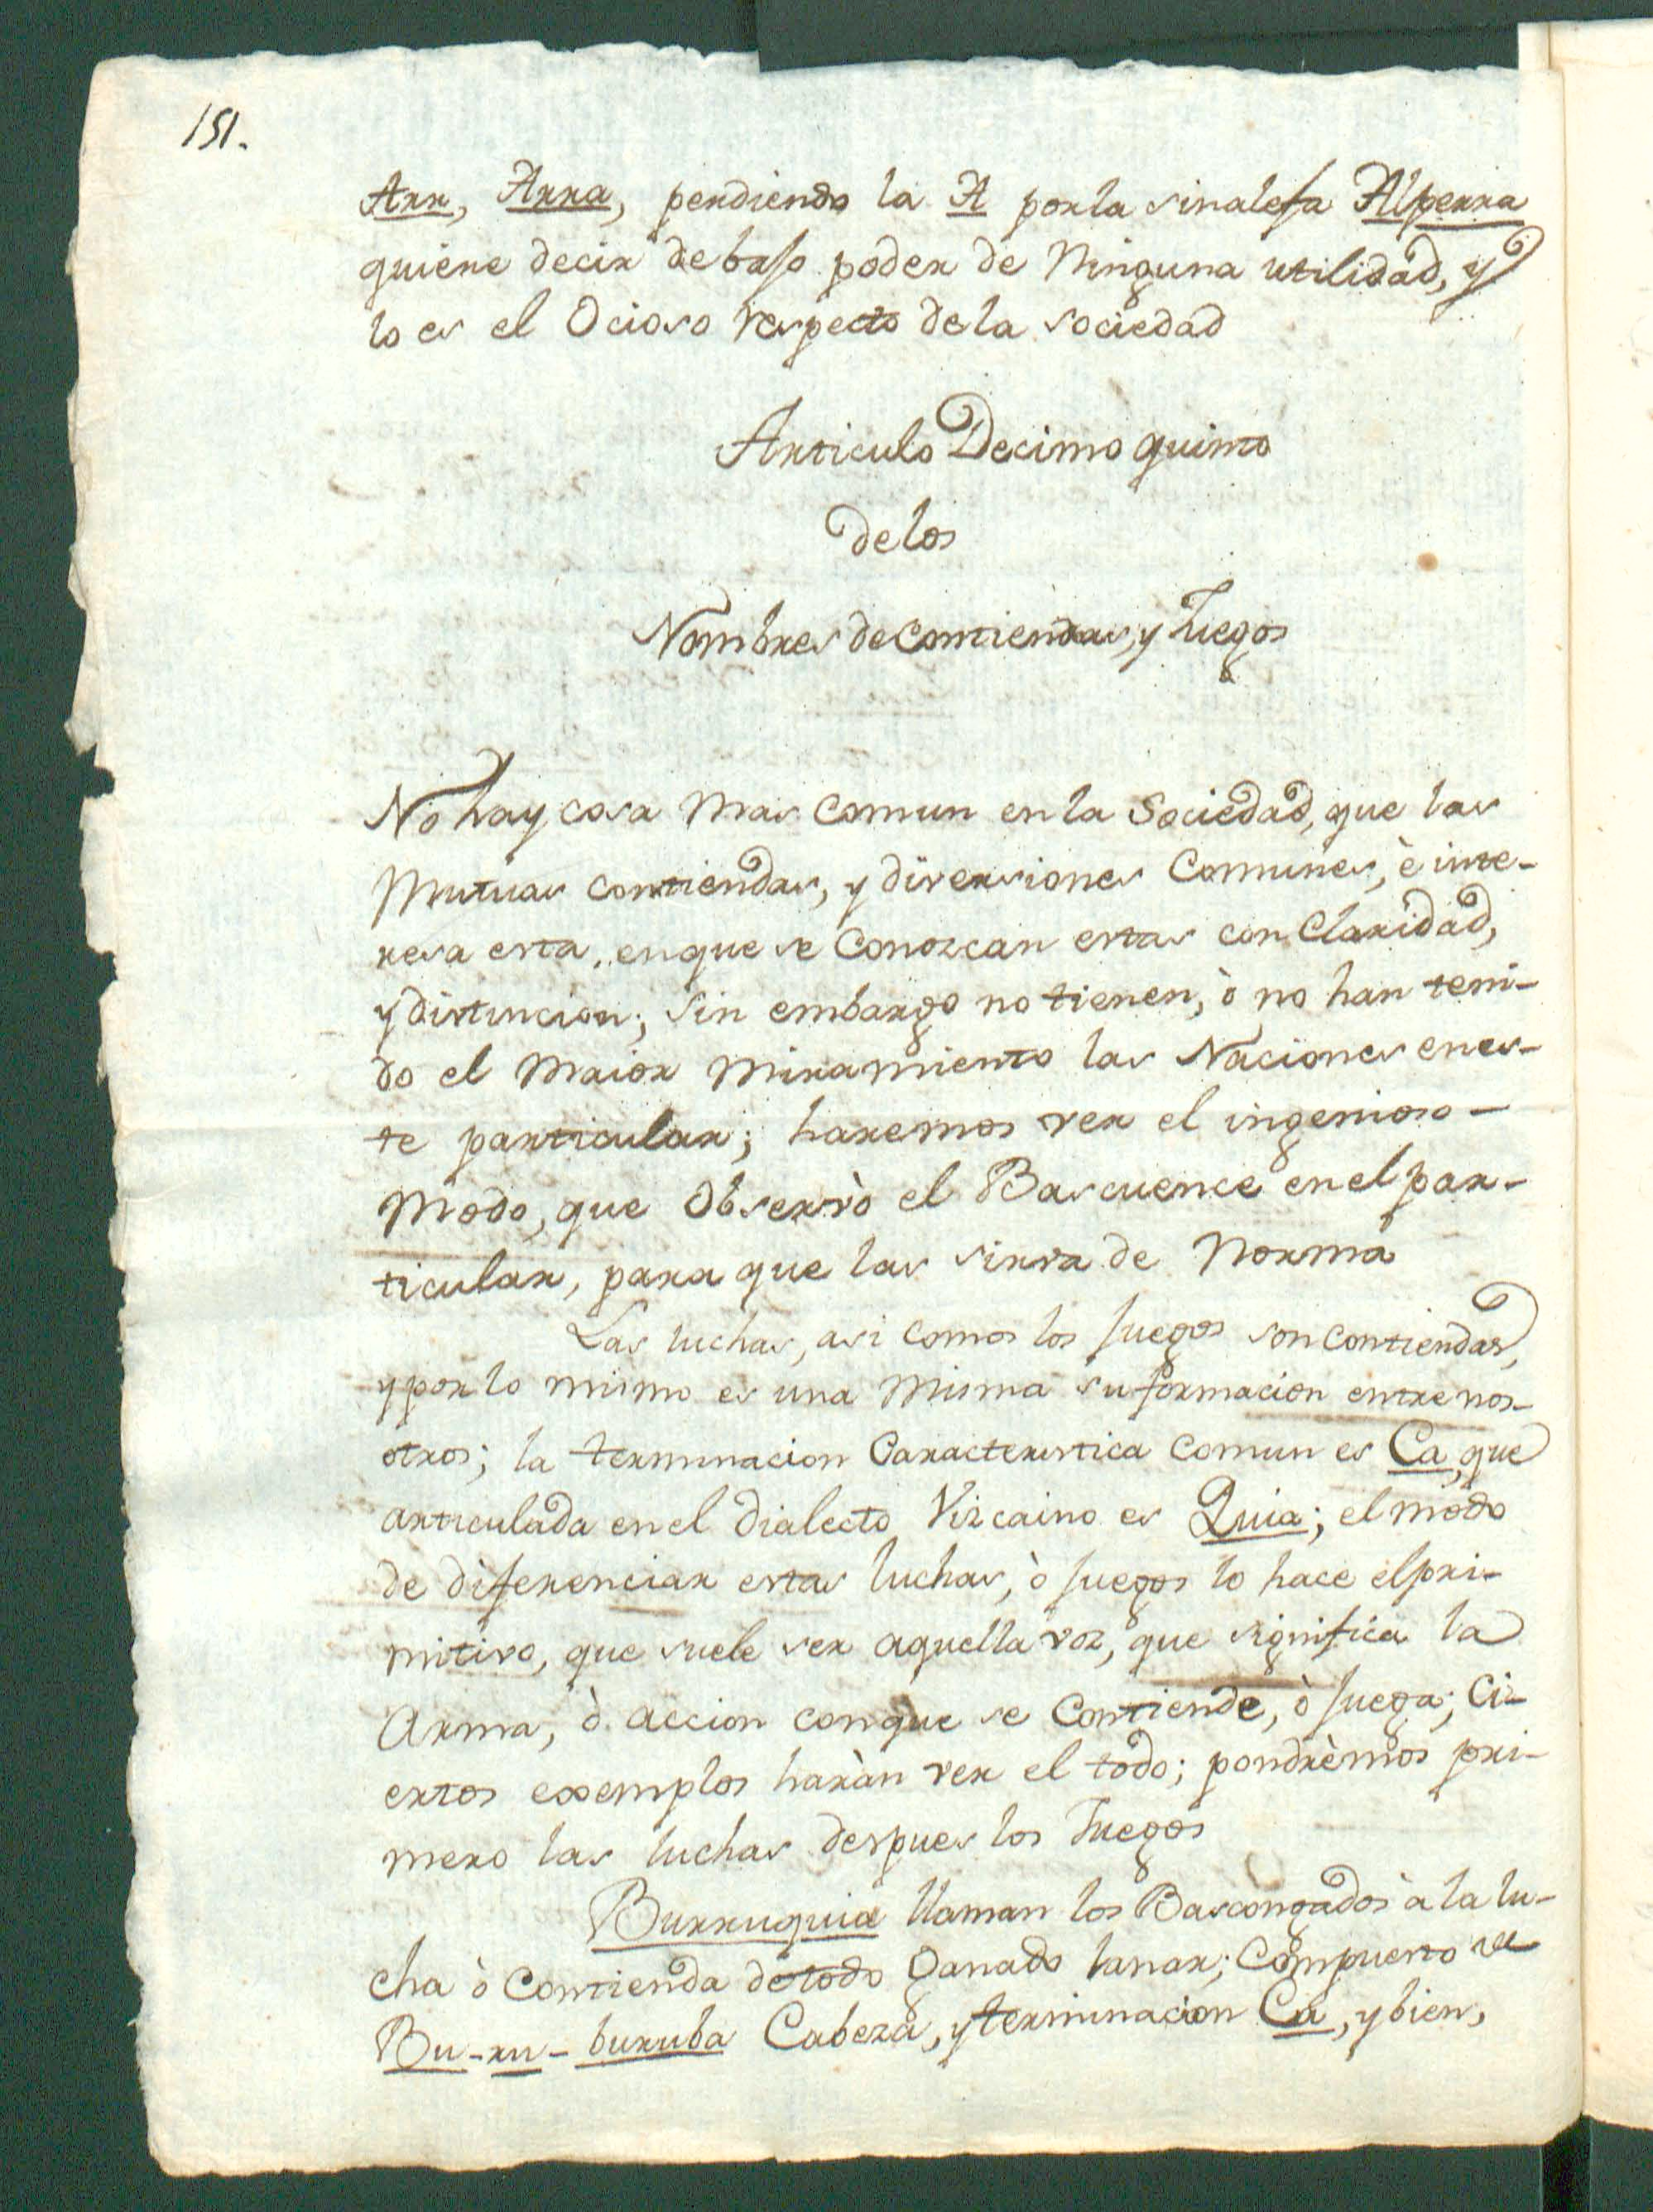 151.
Arr, Arra, perdiendo la A por la sinalefa Alperra
quiere decir debaso poder de Ninguna utilidad, y
lo es el Ocioso respecto dela sociedad
Articulo Decimo quinto
delos
Nombres de Contiendas, y Juegos
No hay cosa mas comun en la Sociedad, que las
Mutuas contiendas, y diversiones Comunes, è inte-
resa esta, enque se Conozcan estas con Claridad,
y distincion; sin embargo no tienen, ò no han teni-
do el Maior Miramiento las Naciones enes-
te particular; haremos ver el ingenioso-
Modo, que Observò el Bascuence en el par-
ticular, para que las sirva de Norma
Las luchas, asi como los juegos son contiendas,
y por lo mismo es una Misma su formacion entre nos-
otros; la terminacion Caracteristica comun es Ca, que
articulada en el Dialecto Vizcaino es Quia; el modo
de diferenciar estas luchas, ò juegos lo hace el pri-
mitivo, que suele ser aquella voz, que significa la
Arma, ò accion conque se Contiende, ò juega; Ci-
ertos exemplos haràn ver el todo; pondrèmos pri-
mero las luchas despues los Juegos
Burruquia llaman los Bascongados à la lu-
cha ò Contienda de todo Ganado lanar; Compuesto de
Bu-ru-buruba Cabeza, y terminacion Ca, y bien,